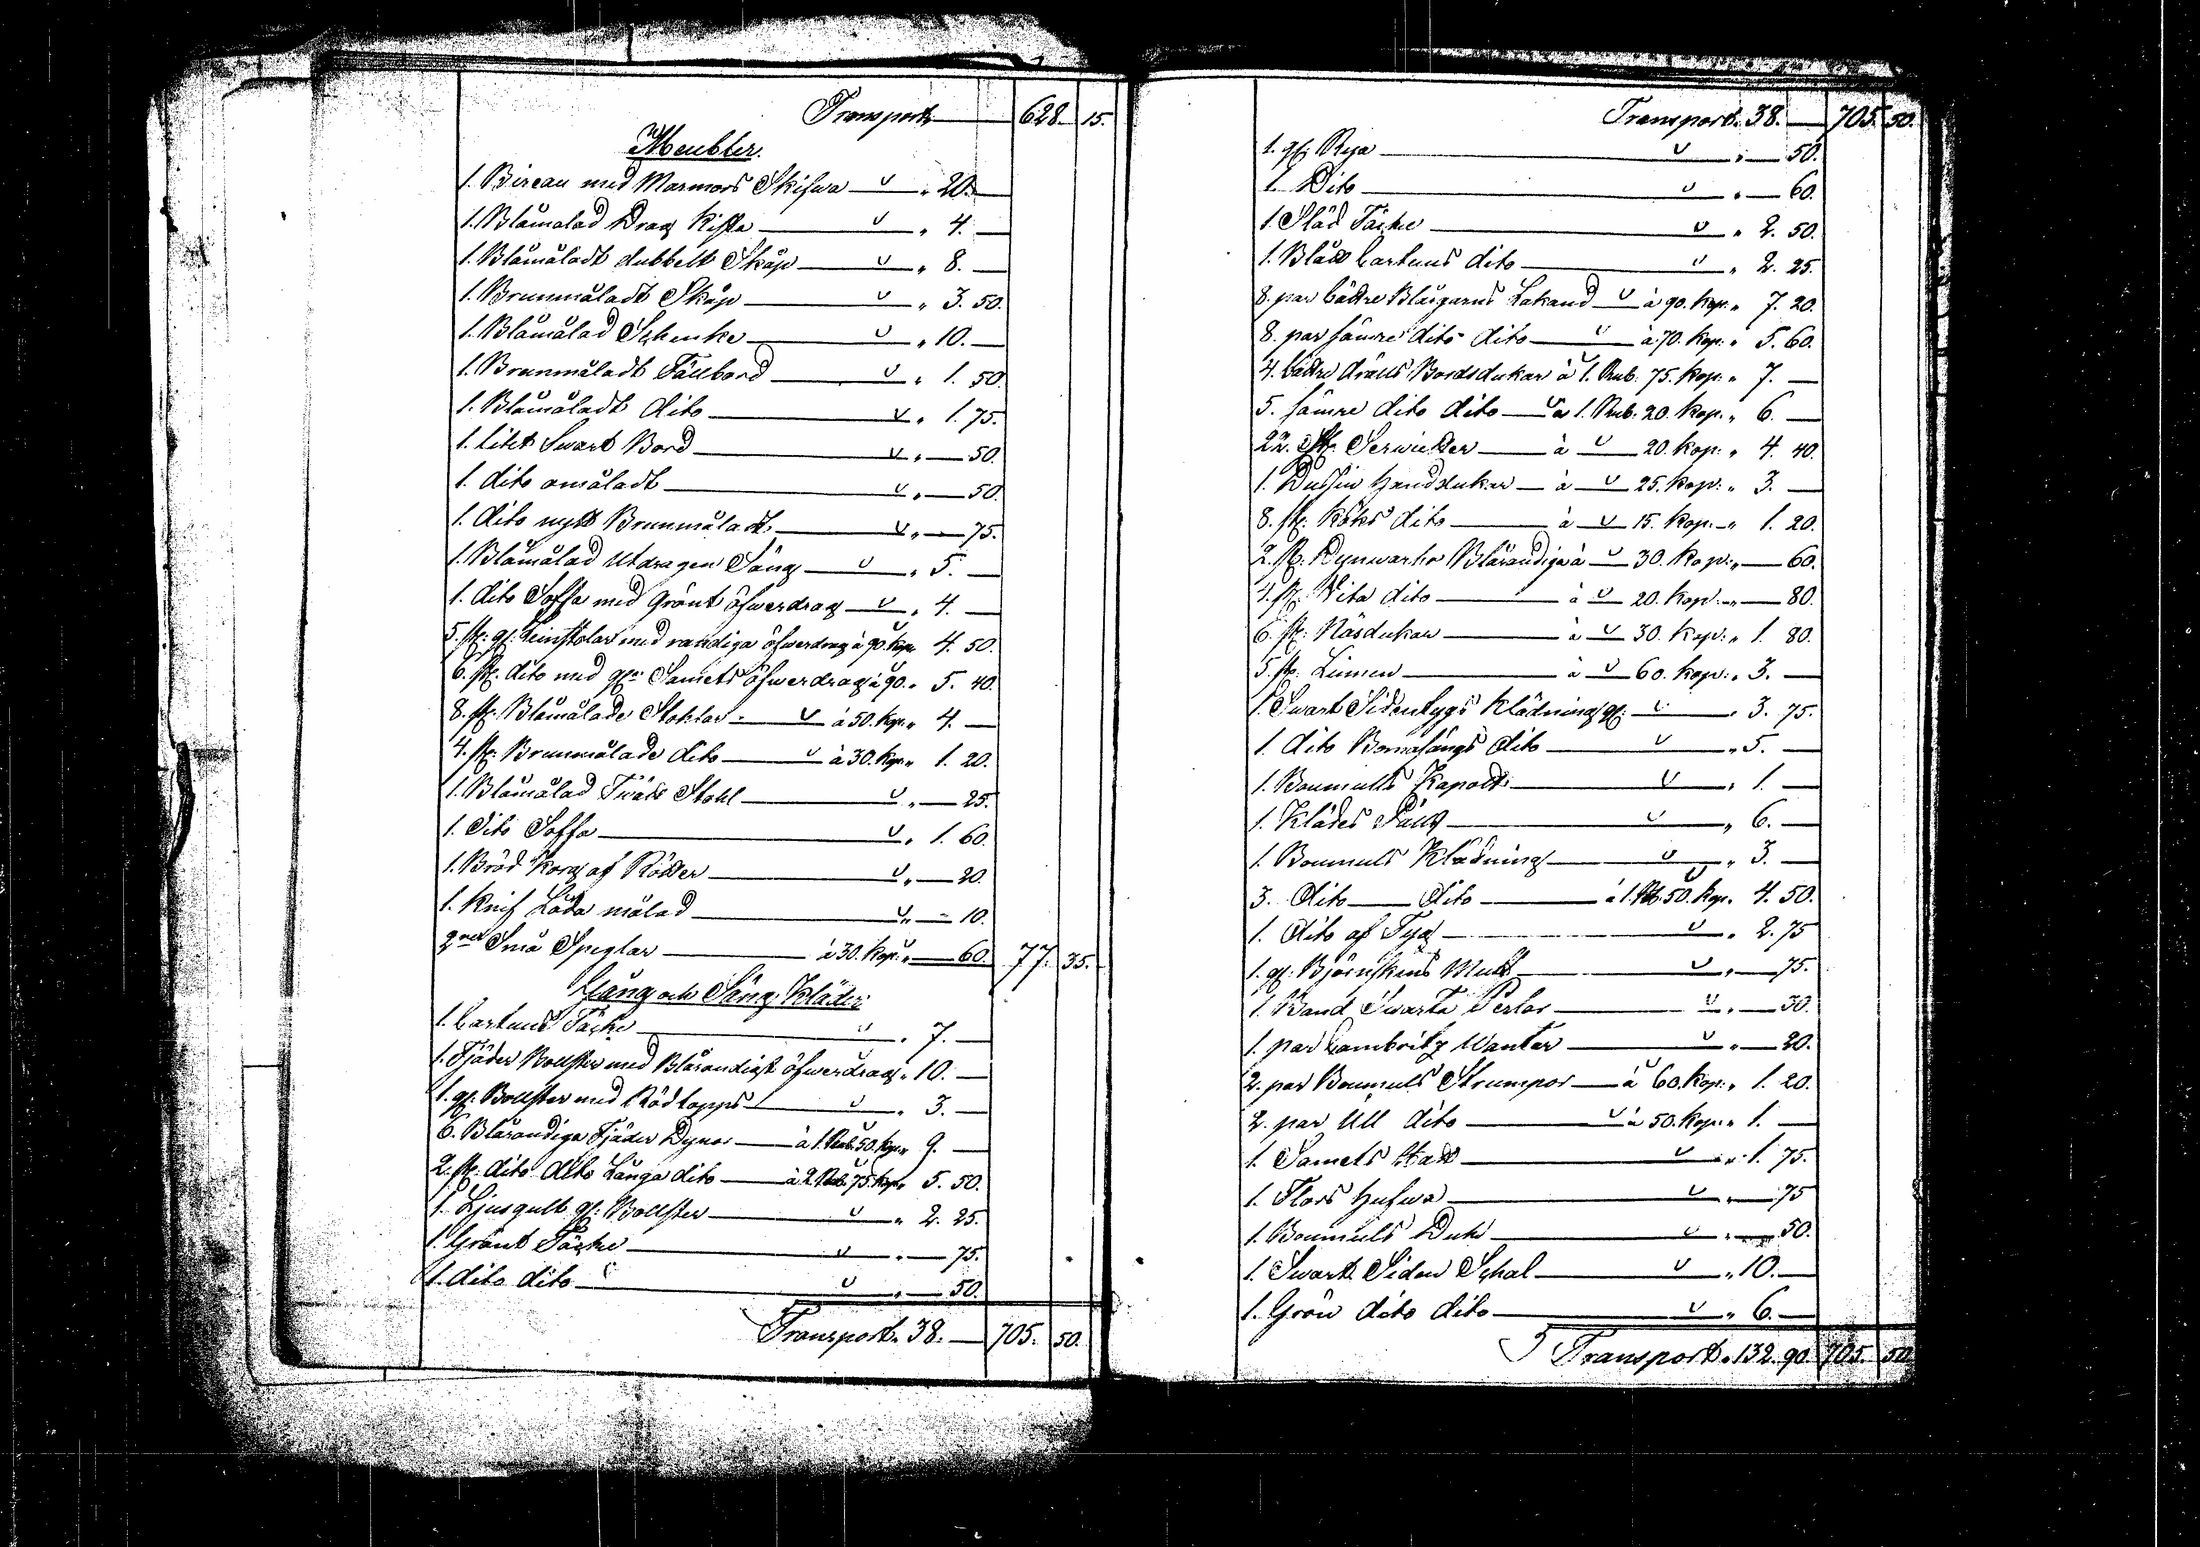 Transport 628. 15.
Meubler.
1. Bireau med Marmors Skifwa " 20. —
1. Blåmålad Drag Kista " 4. —
1. Blåmåladt dubbelt Skåp " 8. —
1. Brunmåladt Skåp " 3. 50.
1. Blåmålad Schenke " 10. —
1. Brunmåladt Fällbord " 1. 50.
1. Blåmåladt dito " 1. 75.
1. litet Swart Bord " — 50.
1. dito omåladt " — 50.
1. dito nytt Brunmåladt " — 75.
1. Blåmålad Utdragen Säng " 5. —
1. dito Soffa med Grönt öfwerdrag " 4. —
5. st: gl: Leinstolar med randiga öfwerdrag à 90. Kop. 4. 50.
6. st: dito med gl: Samets öfwerdrag à 90. " 5. 40.
8. st: Blåmålade Stohlar à 50. Kop: " 4. —
4. st: Brunmålade dito à 30. Kop: " 1. 20.
1. Blåmålad Twätt Stohl " — 25.
1. Dito Soffa " 1. 60.
1. Bröd Korg af Rötter " — 20.
1. Knif Låda målad " — 10.
2ne Små Speglar à 30. Kop: " — 60. 77. 35.
Gång och Säng Kläder
1. Cartuns Täcke " 7. —
1. Fjäder Bollster med Blårandigt öfwerdrag " 10. —
1. gl: Bollster med Rödlapps " 3. —
6. Blårandiga Fjäder Dynor à 1. Rub. 50. Kop: " 9. —
2. st: dito dito Långa dito à 2. Rub. 75. Kop: " 5. 50.
1. Ljusgult gl: Bollster " 2. 25.
1. Grönt Täcke " — 75.
1. dito dito " — 50.
Transport " 38. — 705. 50.
Transport " 38. — 705. 50.
1. gl: Rya " — 50.
1. Dito " — 60.
1. Släd Täcke " 2. 50.
1. Blått Cartuns dito " 2. 25.
8. par bättre Blårgarns Lakand à 90. Kop: " 7. 20.
8. par sämre dito dito à 70. Kop: " 5. 60.
4. bättre drälls Bordsdukar à 1. Rub: 75. Kop: " 7. —
5. sämre dito dito à 1. Rub: 20. Kop: " 6. —
22. st: Serwietter à 20. Kop: " 4. 40.
1. Dussin Handdukar à 25. Kop: " 3. —
8. st: Köks dito à 15. Kop: " 1. 20.
2. st: Dynwarho Blårandiga à 30. Kop: " — 60.
4. st: Vita dito à 20. Kop: " — 80.
6. st: Näsdukar à 30. Kop: " 1. 80.
5. st: Linnen à 60. Kop: " 3. —
1. Swart Sidentygs Klädning gl: " 3. 75.
1. dito Bomasängs dito " 5. —
1. Boumulls Kapott " 1. —
1. Klädes Pälts " 6. —
1. Boumuls Klädning " 3. —
3. Dito Dito à 1. Rub. 50. Kop. 4. 50.
1. Dito af Tyg " 2. 75
1. gl: Björnskins Muff " — 75.
1. Band Swarta Perlor " — 30.
1. par Cambritz Wantar " — 20.
2. par Boumuls Strumpor à 60. Kop: " 1. 20.
2. par Ull dito à 50. Kop: " 1. —
1. Samets Hatt " 1. 75.
1. Flors Hufwa " — 75
1. Boumuls Duk " — 50.
1. Swart Siden Schal " 10. —
1. Grön dito dito " 6. —
Transport " 132. 90. 705. 50.